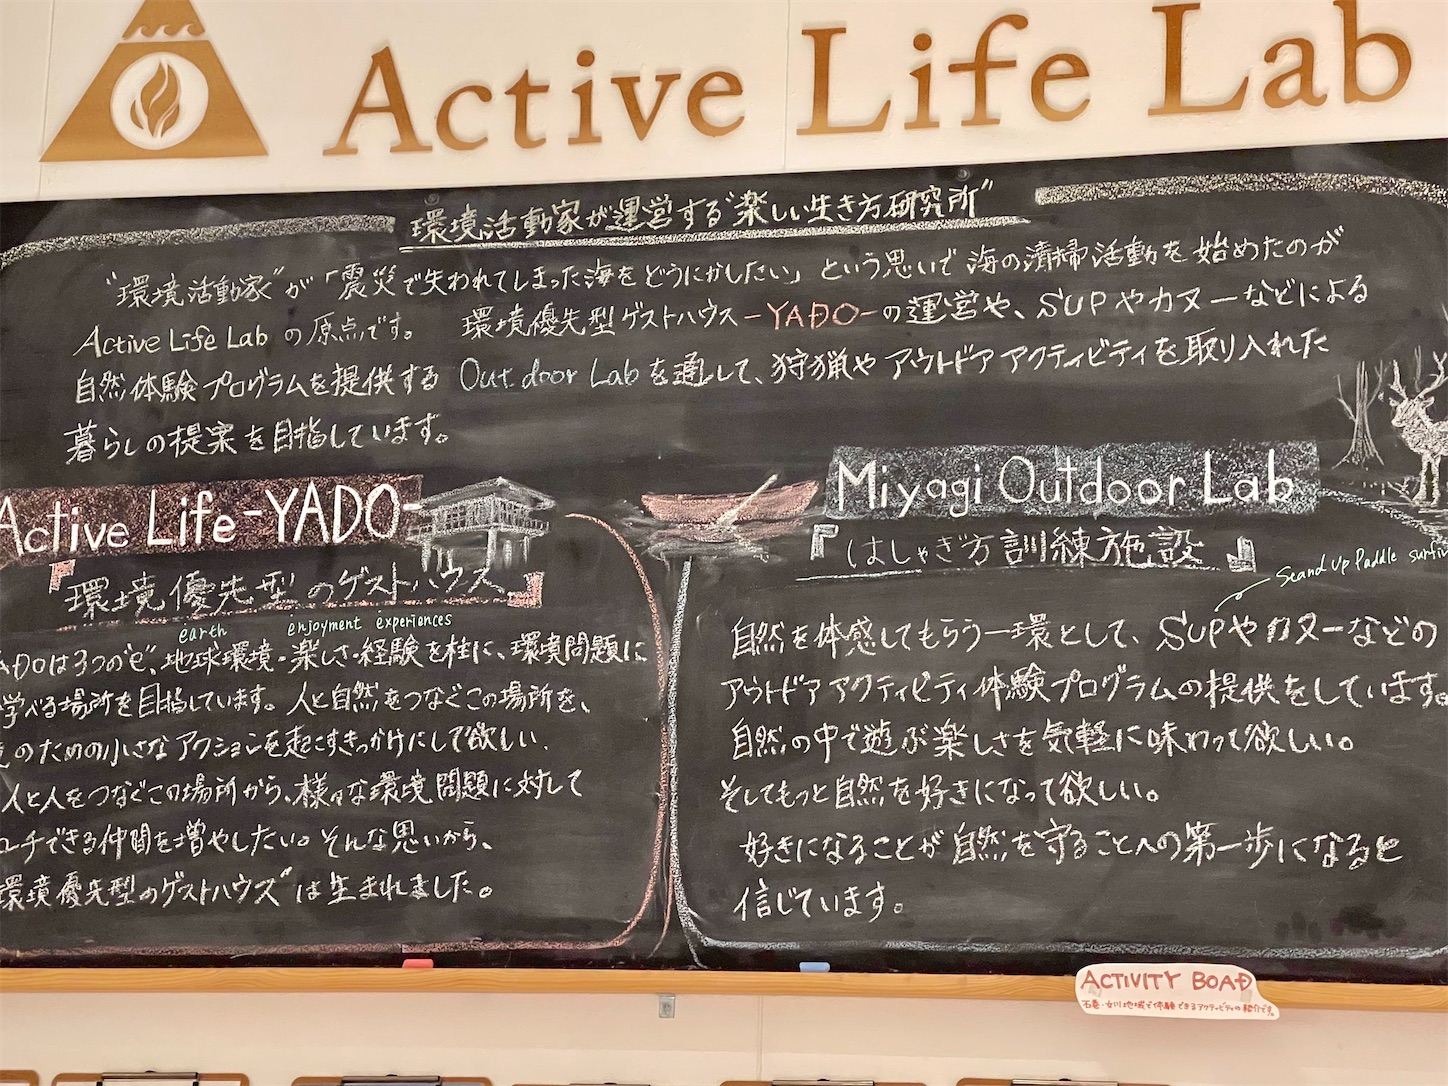 Active Life Lab
環境活動家が運営する“楽しい生き方研究所”
“環境活動家”が「震災で失われてしまった海をどうにかしたい」という思いで海の清掃活動を始めたのが
Active Life Lab の原点です。 環境優先型ゲストハウス-YADO-の運営や、SUPやカヌーなどによる
自然体験プログラムを提供する Out door Labを通して、狩猟やアウトドアアクティビティを取り入れた
暮らしの提案を目指しています。
Active Life -YADO-
『環境優先型のゲストハウス』
earth enjoyment experiences
ADOは3つの“e”、地球環境・楽しさ・経験を柱に、環境問題に
学べる場所を目指しています。人と自然をつなぐこの場所を、
のための小さなアクションを起こすきっかけにして欲しい、
人と人をつなぐこの場所から、様々な環境問題に対して
ーチできる仲間を増やしたい。そんな思いから、
環境優先型のゲストハウス”は生まれました。
Miyagi Outdoor Lab
『はしゃぎ方訓練施設』
Stand Up Paddle surfi
自然を体感してもらう一環として、SUPやカヌーなどの
アウトドアアクティビティ体験プログラムの提供をしています。
自然の中で遊ぶ楽しさを気軽に味わって欲しい。
そしてもっと自然を好きになって欲しい。
好きになることが自然を守ることへの第一歩になると
信じています。
ACTIVITY BOAD
石巻・女川地域で体験できるアクティビティの紹介です。